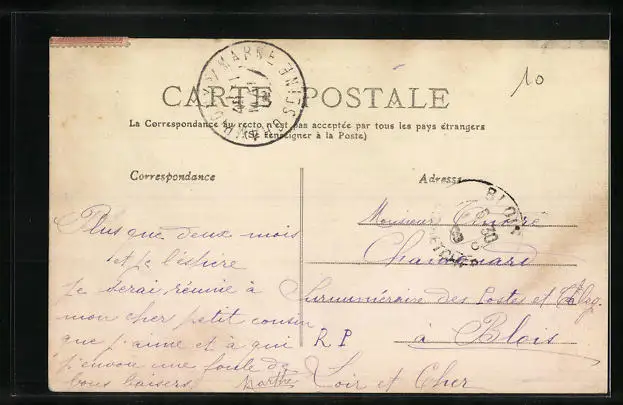 10
CARTE POSTALE
La Correspondance au recto n'est pas acceptée par tous les pays étrangers
(Se renseigner à la Poste)
Correspondance
Adresse
Plus que deux mois
et je l'espère
je serai réunie à
mon cher petit cousin
que j'aime et à qui
j'envoie une foule de
bons baisers
Marthe
Monsieur
Surnuméraire des Postes et Télég.
R P
à Blois
Loir et Cher
MARNE
BLOIS